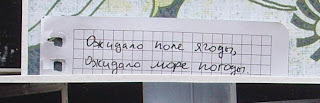 Ожидало поле ягоды,
Ожидало море погоды.